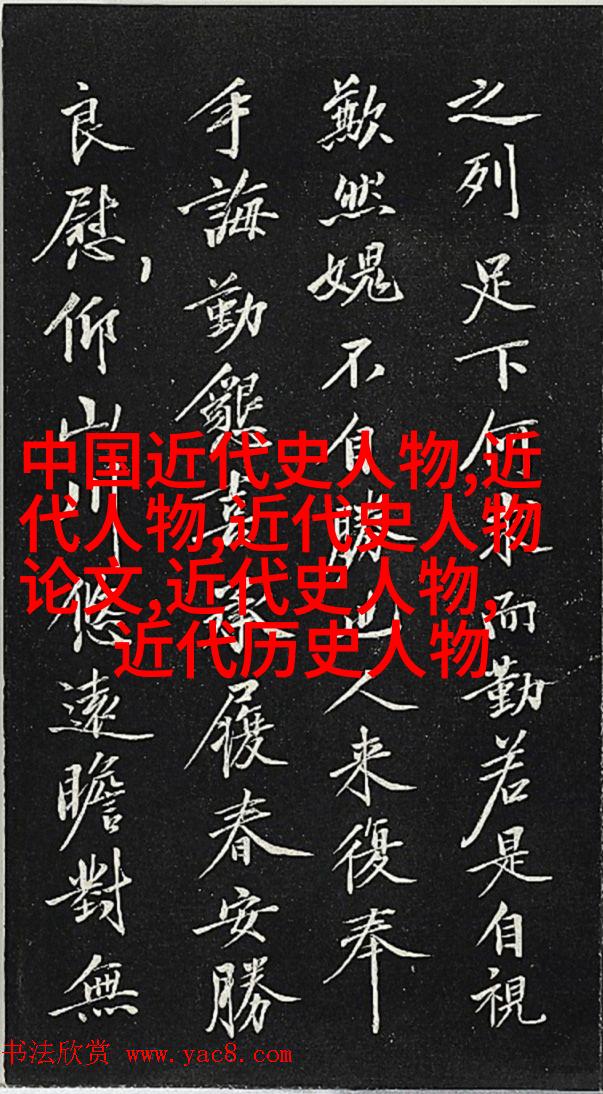 之列足下何求而勤若是自視
歉然媿不自勝也人来復奉
手誨勤懇喜承履春安勝
良慰,仰山川悠遠瞻對無
中国近代史人物,近
代人物,近代史人物
论文,近代史人物,
近代历史人物
书法欣赏 www.yac8.com